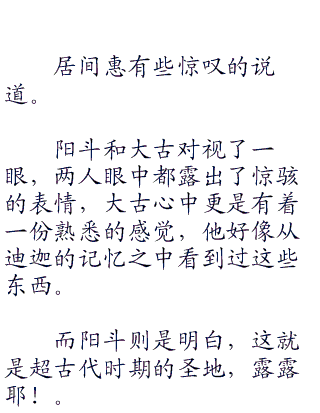 居间惠有些惊叹的说
道。
阳斗和大古对视了一
眼，两人眼中都露出了惊骇
的表情，大古心中更是有着
一份熟悉的感觉，他好像从
迪迦的记忆之中看到过这些
东西。
而阳斗则是明白，这就
是超古代时期的圣地，露露
耶！。